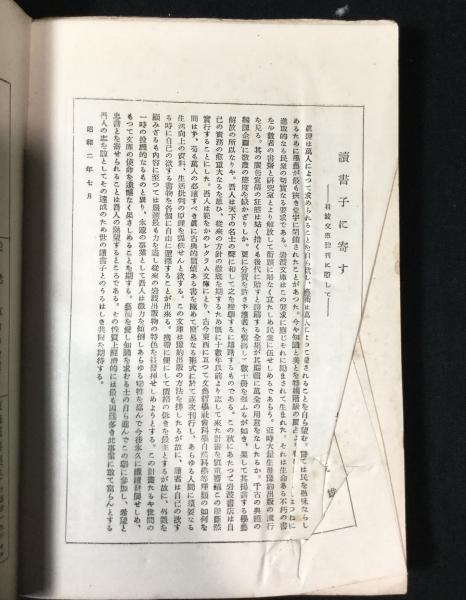 讀書子に寄す
――岩波文庫發刊に際して――
眞理は萬人によつて求められることを自ら欲し、藝術は萬人によつて愛されることを自ら望む。嘗ては民を愚昧ならし
めるために學藝が最も狹き堂宇に閉鎖されたことがあつた。今や知識と美とを特權階級の獨占 つねに
進取的なる民衆の切實なる要求である。岩波文庫はこの要求に應じそれに勵まされて生れた。それは生命ある不朽の書
を少數者の書齋と硏究室とより解放して街頭に隈なく立たしめ民衆に伍せしめるであらう。近時大量生產豫約出版の流行
を見る。其の廣告宣傳の狂態は姑く措くも後代に貽すと誇稱する全集が其編輯に萬全の用意をなしたるか。千古の典籍の
飜譯企圖に敬虔の態度を缺かざりしか。更に分賣を許さず讀者を繫縛して數十冊を强ふるが如き、果して其揚言する學藝
解放の所以なりや。吾人は天下の名士の聲に和して之を推擧するに躊躇するものである。この秋にあたつて岩波書店は自
己の責務の愈重大なるを思ひ、從來の方針の徹底を期するため旣に十數年以前より志して來た計畫を愼重審議この際斷然
實行することにした。吾人は範をかのレクラム文庫にとり、古今東西に亙つて文藝哲學社會科學自然科學等種類の如何を
問はず、苟も萬人の必讀すべき眞に古典的價値ある書を極めて簡易なる形式に於て逐次刊行し、あらゆる人間に須要なる
生活向上の資料、生活批判の原理を提供せんと欲する。この文庫は豫約出版の方法を排したるが故に、讀者は自己の欲す
る時に自己の欲する書物を各個に自由に選擇することが出來る。携帶に便にして價格の低きを最主とするが故に、外觀を
顧みざるも內容に至つては嚴選最も力を盡し從來の岩波出版物の特色を益發揮せしめようとする。この計畫たるや世間の
一時の投機的なるものと異り、永遠の事業として吾人は微力を傾倒しあらゆる犧牲を忍んで今後永久に繼續發展せしめ、
もつて文庫の使命を遺憾なく果さしめることを期する。藝術を愛し知識を求むる士の自ら進んでこの擧に參加し、希望と
忠言とを寄せられることは吾人の熱望するところである。その性質上經濟的には最も困難多き此事業に敢て當らんとする
吾人の志を諒としてその達成のため世の讀書子とのうるはしき共同を期待する。
昭和二年七月